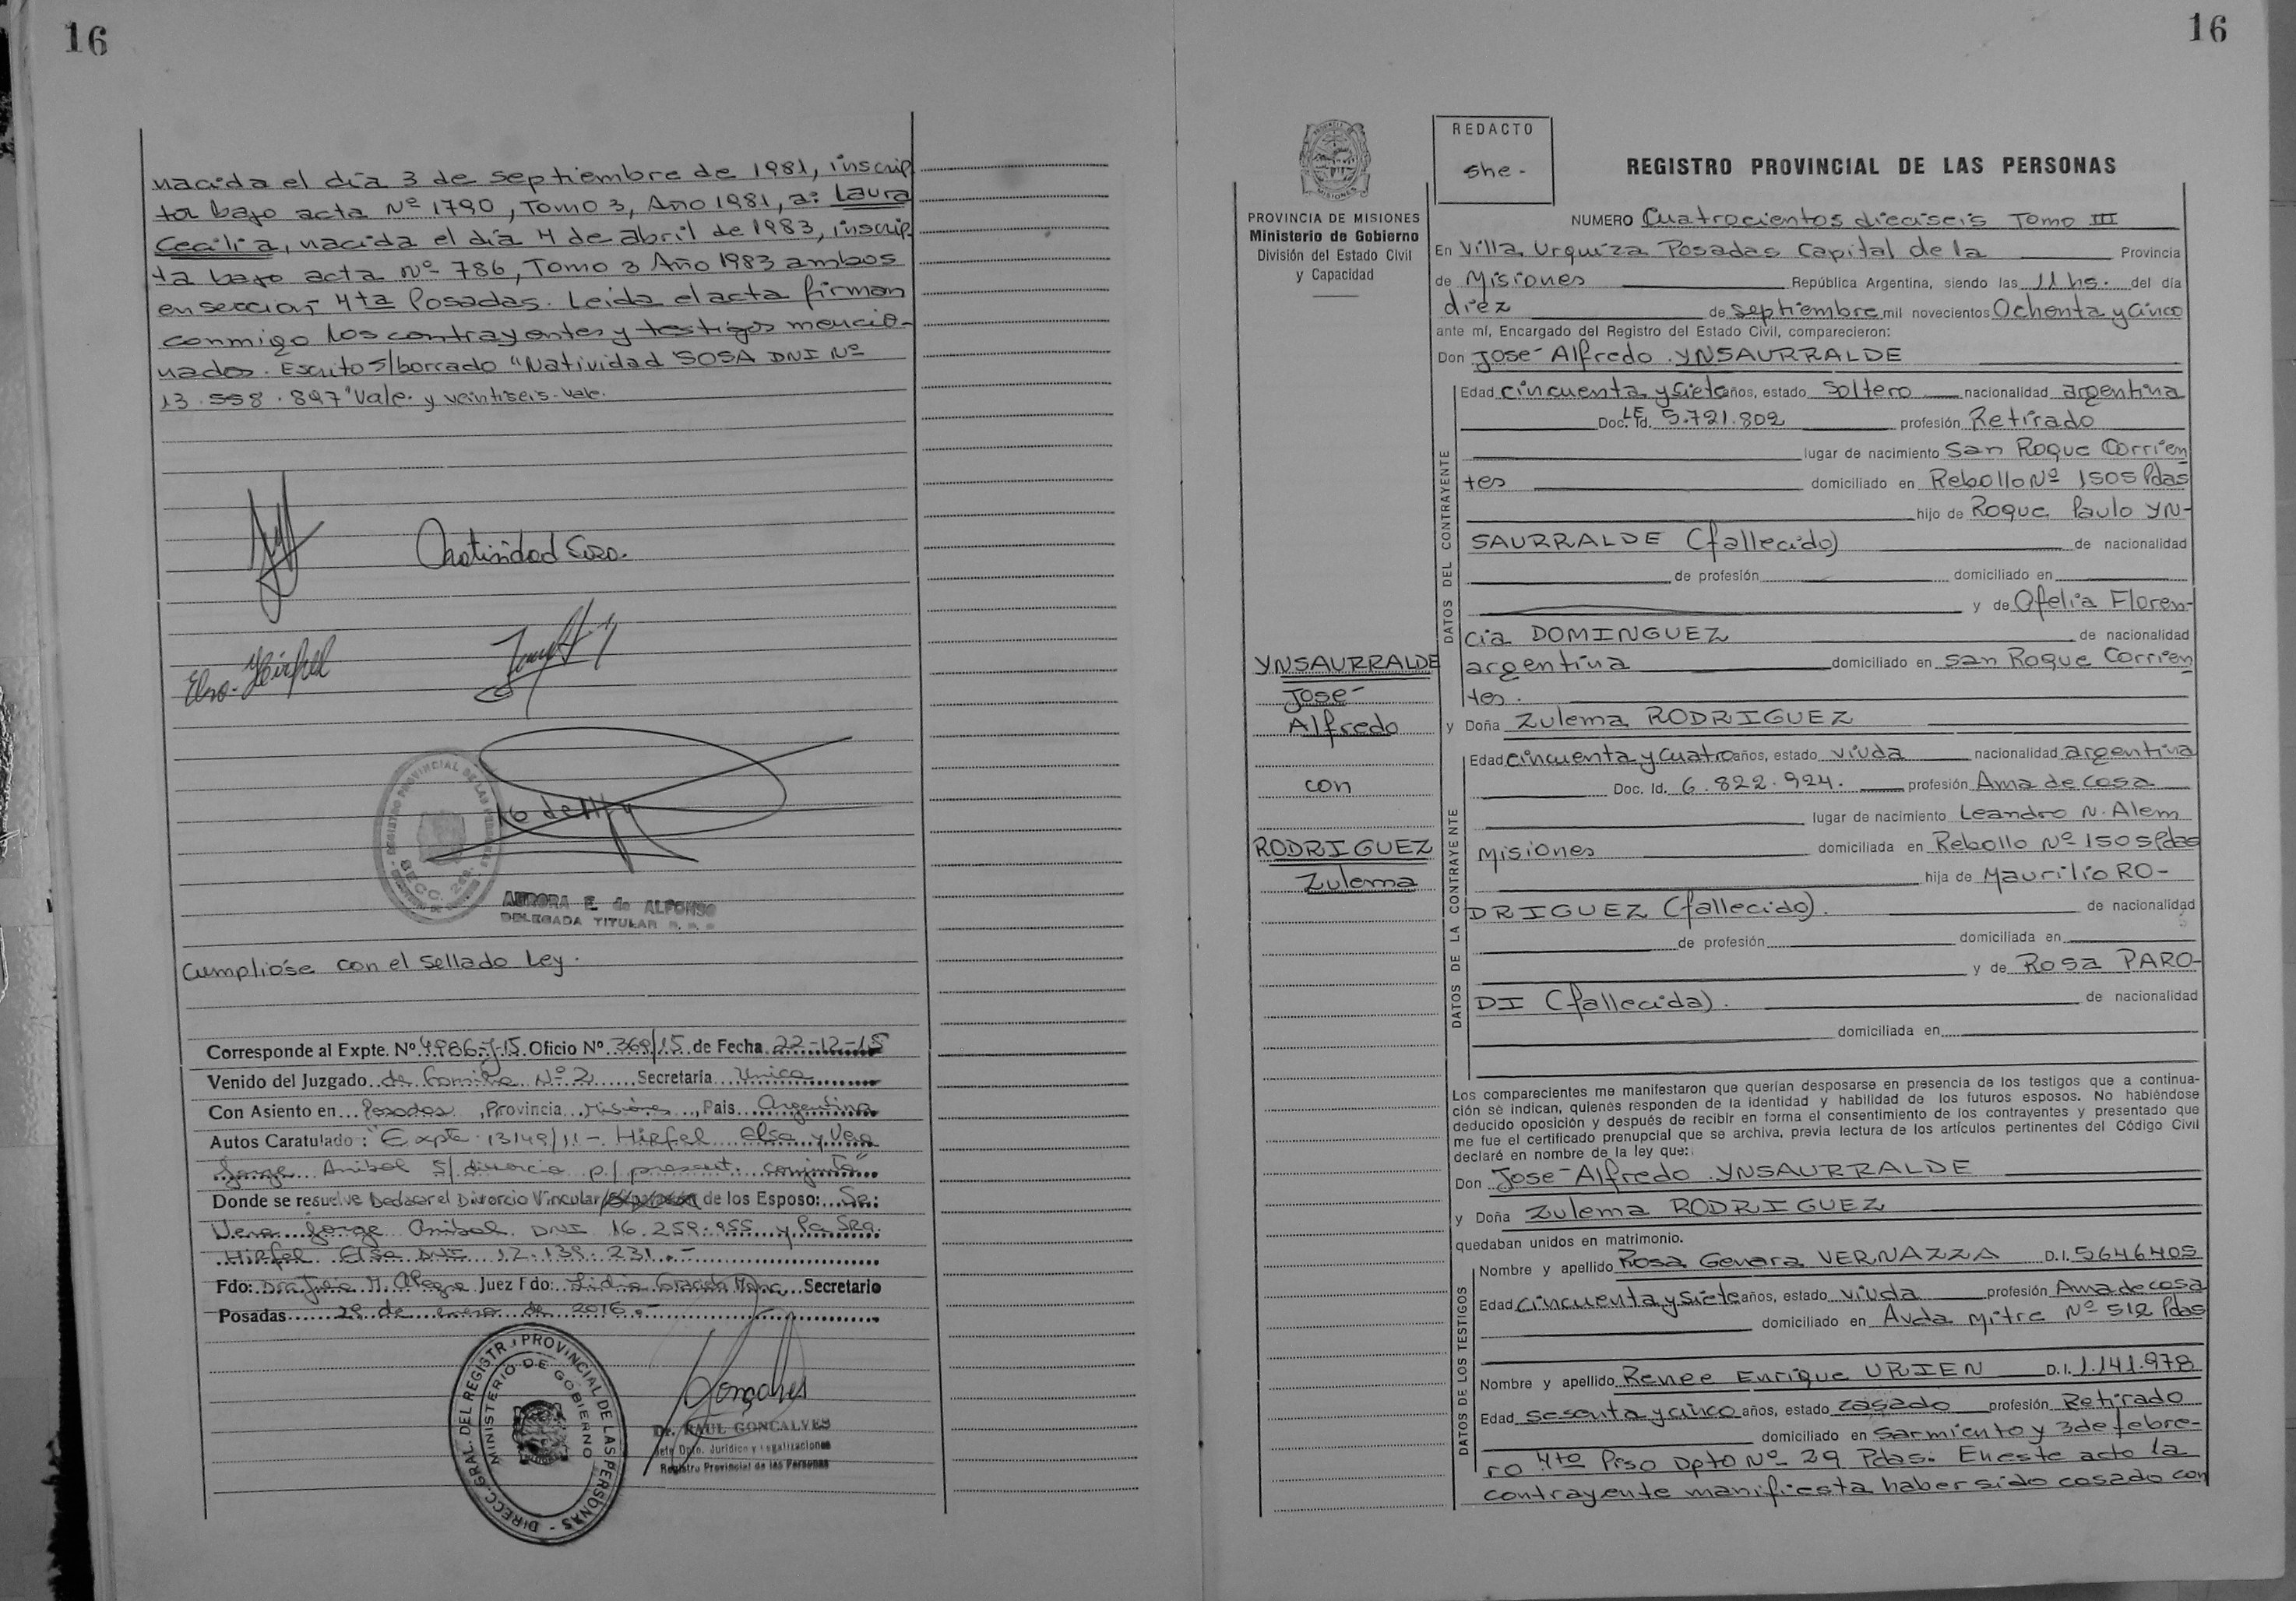 16
nacida el día 3 de septiembre de 1981, inscrip
ta bajo acta Nº 1790, Tomo 3, Año 1981, a: Laura
Cecilia, nacida el día 4 de abril de 1983, inscrip
ta bajo acta Nº 786, Tomo 3 Año 1983 ambos
en sección 4ta Posadas. Leida el acta firman
conmigo los contrayentes y testigos mencio-
nados. Escrito s/borrado "Natividad SOSA DNI Nº
13.558.897" Vale. y veintiseis. vale.
Natividad Sosa.
Elsa Hirfel
REGISTRO PROVINCIAL DE LAS PERSONAS
SECC. 2da.
AURORA E. de ALFONSO
DELEGADA TITULAR
Cumplióse con el sellado Ley.
Corresponde al Expte. Nº 4986-J-15 Oficio Nº 369/15 de Fecha 22-12-15
Venido del Juzgado de Familia Nº 2 Secretaría Unica
Con Asiento en Posadas, Provincia Misiones, Pais Argentina
Autos Caratulado: "Expte 13149/11 - Hirfel Elsa y Vera
Jorge Anibal S/ divorcio p/ present. conjunta"
Donde se resuelve Declarar el Divorcio Vincular de los Esposo: Sr.
Vera Jorge Anibal DNI 16.259.955 y la Sra.
Hirfel Elsa DNI 12.139.231.-
Fdo: Dra Julia M. Alegre Juez Fdo: Lidia Graciela Secretario
Posadas 29 de enero de 2016.-
DIRECC. GRAL. DEL REGISTR. PROVINCIAL DE LAS PERSONAS
MINISTERIO DE GOBIERNO
Dr. RAUL GONCALVES
Jefe Dpto. Jurídico y Legalizaciones
Registro Provincial de las Personas
16
PROVINCIA DE MISIONES
Ministerio de Gobierno
División del Estado Civil
y Capacidad
REDACTO
she-
REGISTRO PROVINCIAL DE LAS PERSONAS
NUMERO Cuatrocientos dieciseis Tomo III
En Villa Urquiza Posadas Capital de la Provincia
de Misiones República Argentina, siendo las 11 hs. del día
diez de septiembre mil novecientos Ochenta y cinco
ante mí, Encargado del Registro del Estado Civil, comparecieron:
Don José Alfredo YNSAURRALDE
DATOS DEL CONTRAYENTE
Edad cincuenta y siete años, estado Soltero nacionalidad argentina
Doc. Id. LE 5.721.802 profesión Retirado
lugar de nacimiento San Roque Corrien
tes domiciliado en Rebollo Nº 1505 Pdas
hijo de Roque Paulo YN-
SAURRALDE (fallecido) de nacionalidad
de profesión domiciliado en
y de Ofelia Floren-
cia DOMINGUEZ de nacionalidad
argentina domiciliado en San Roque Corrien
tes.
YNSAURRALDE
José
Alfredo
con
RODRIGUEZ
Zulema
y Doña Zulema RODRIGUEZ
DATOS DE LA CONTRAYENTE
Edad cincuenta y cuatro años, estado viuda nacionalidad argentina
Doc. Id. 6.822.924. profesión Ama de casa
lugar de nacimiento Leandro N. Alem
Misiones domiciliada en Rebollo Nº 1505 Pdas
hija de Maurilio RO-
DRIGUEZ (fallecido). de nacionalidad
de profesión domiciliada en
y de Rosa PARO-
DI (fallecida). de nacionalidad
domiciliada en
Los comparecientes me manifestaron que querían desposarse en presencia de los testigos que a continua-
ción se indican, quienes responden de la identidad y habilidad de los futuros esposos. No habiéndose
deducido oposición y después de recibir en forma el consentimiento de los contrayentes y presentado que
me fue el certificado prenupcial que se archiva, previa lectura de los artículos pertinentes del Código Civil
declaré en nombre de la ley que:
Don José Alfredo YNSAURRALDE
y Doña Zulema RODRIGUEZ
quedaban unidos en matrimonio.
DATOS DE LOS TESTIGOS
Nombre y apellido Rosa Genara VERNAZZA D.I. 5646405
Edad cincuenta y siete años, estado viuda profesión Ama de casa
domiciliado en Avda Mitre Nº 512 Pdas
Nombre y apellido Renee Enrique URIEN D.I. 1.141.978
Edad sesenta y cinco años, estado casado profesión Retirado
domiciliado en Sarmiento y 3 de febre-
ro 4to Piso Dpto Nº 29 Pdas. En este acto la
contrayente manifiesta haber sido casado con